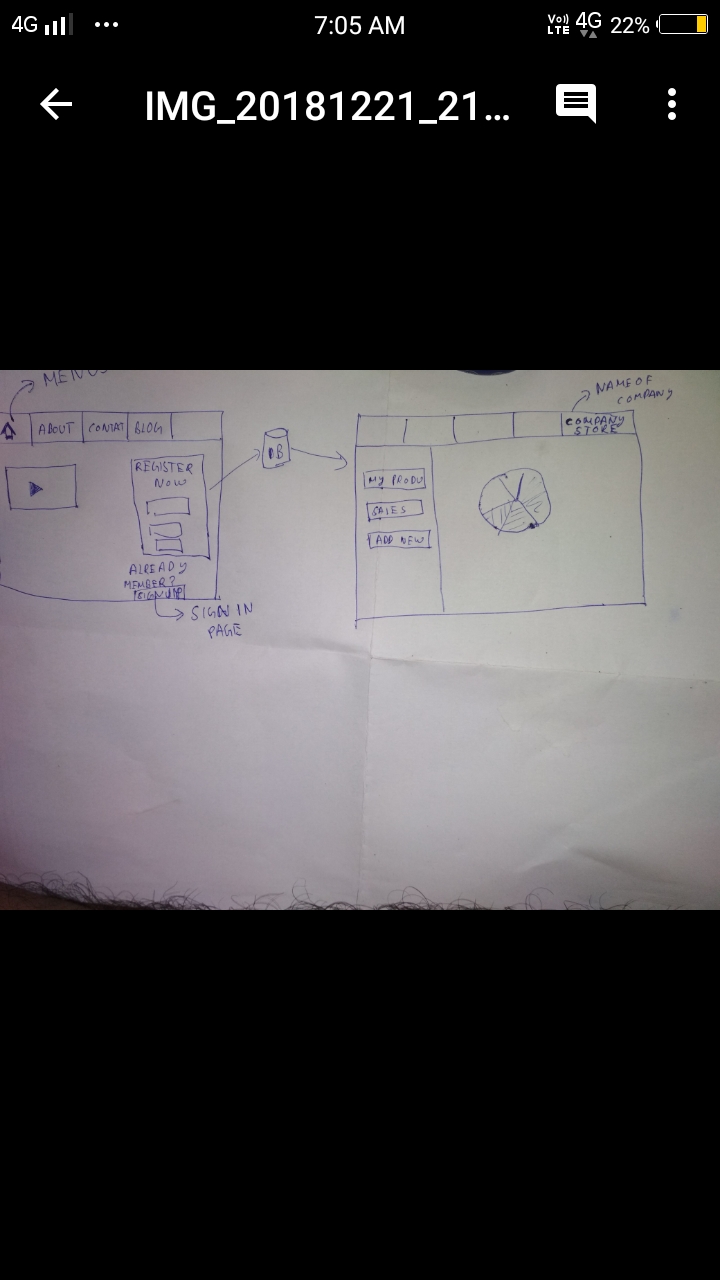 4G
7:05 AM
Vo))
LTE
4G
22%
IMG_20181221_21...
MENUS
ABOUT
CONTAT
BLOG
REGISTER
NOW
ALREADY
MEMBER?
SIGNUP
SIGN IN
PAGE
DB
NAME OF
COMPANY
COMPANY
STORE
MY PRODU
SALES
ADD NEW